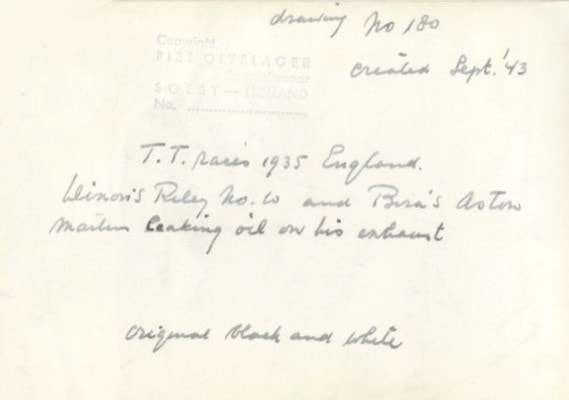 drawing No 180
Copyright
PIET OLYSLAGER
SOEST — HOLLAND
No. ....................
created Sept. '43
T.T. races 1935 England.
Riley No. 10 and Bira's Aston
Martin leaking oil on his exhaust
original black and white